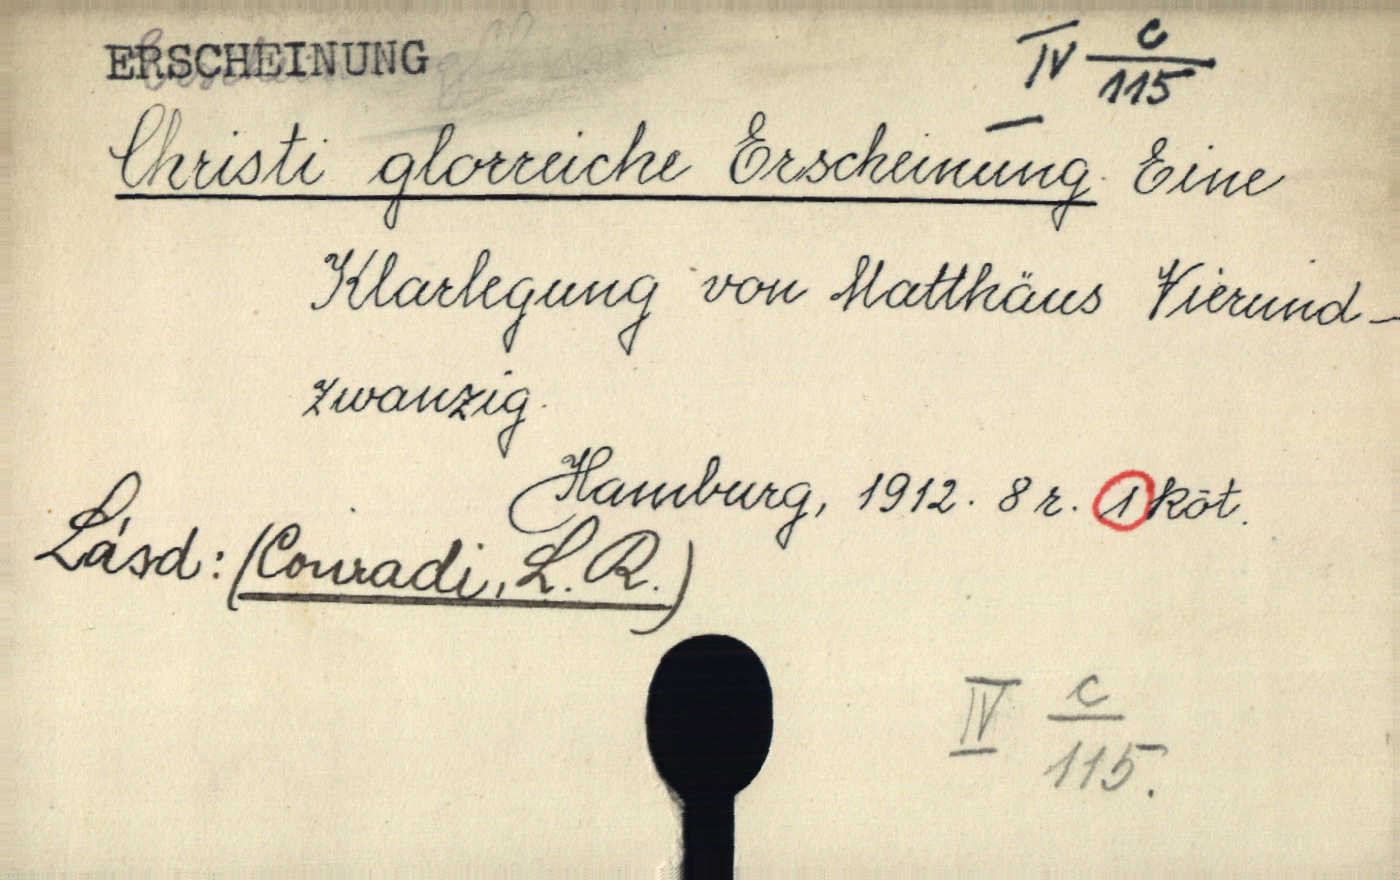 ERSCHEINUNG
IV c/115
Christi glorreiche Erscheinung. Eine
Klarlegung von Matthäus Vierund-
zwanzig.
Hamburg, 1912. 8 r. 1 köt.
Lásd: (Conradi, L. R.)
IV c/115.